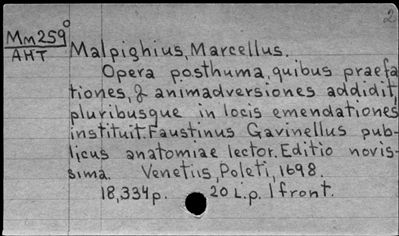 2
Mm259°
AHT
Malpighius, Marcellus.
Opera posthuma, quibus praefa
tiones, & animadversiones addidit,
pluribusque in locis emendationes
instituit Faustinus Gavinellus pub-
licus anatomiae lector. Editio novis-
sima. Venetiis, Poleti, 1698.
18,334p. 20 L.p. 1 front.